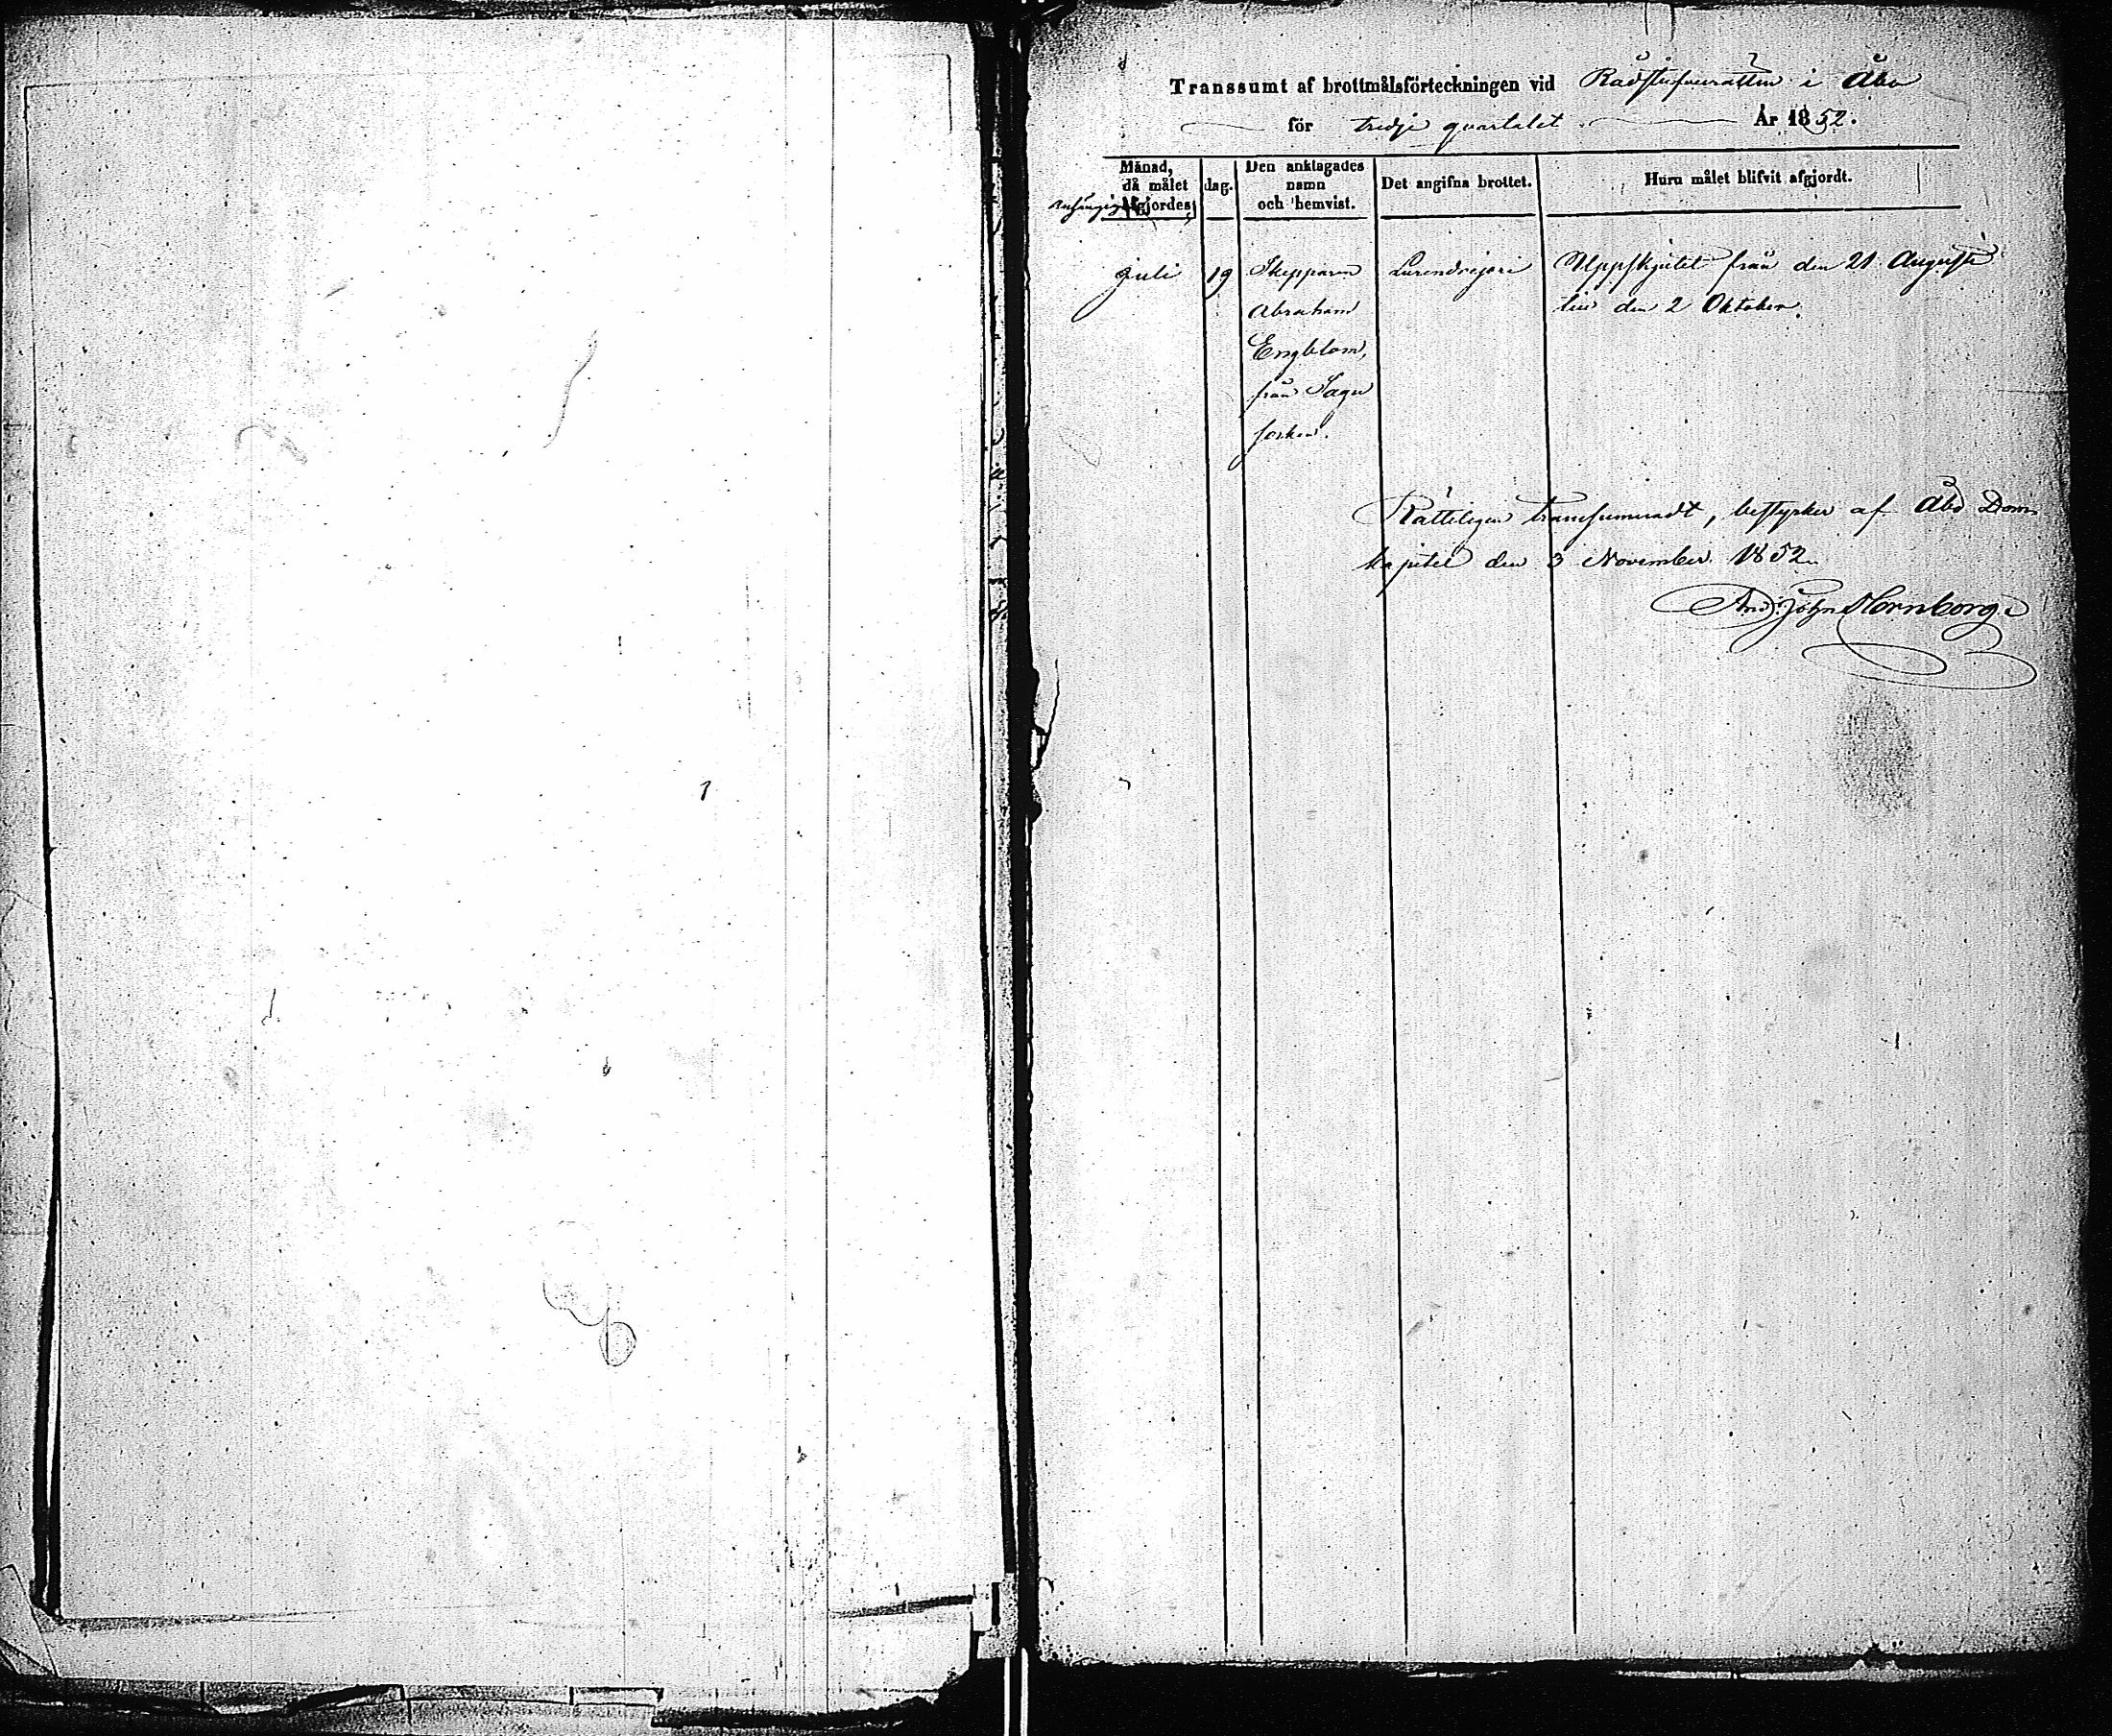 Transsumt af brottmålsförteckningen vid Rådstufvurätten i Åbo
för tredje quartalet. År 1852.
Månad, då målet anhängiggjordes,
dag.
Den anklagades namn och hemvist.
Det angifna brottet.
Huru målet blifvit afgjordt.
Juli 19 Skepparen Lurendrejeri Uppskjutet från den 21 Augusti
Abraham till den 2 Oktober.
Engblom,
från Sagu
socken.
Rätteligen transsumeradt, bestyrker af Åbo Dom
kapitel den 3 November 1852.
And: John Hornborg.